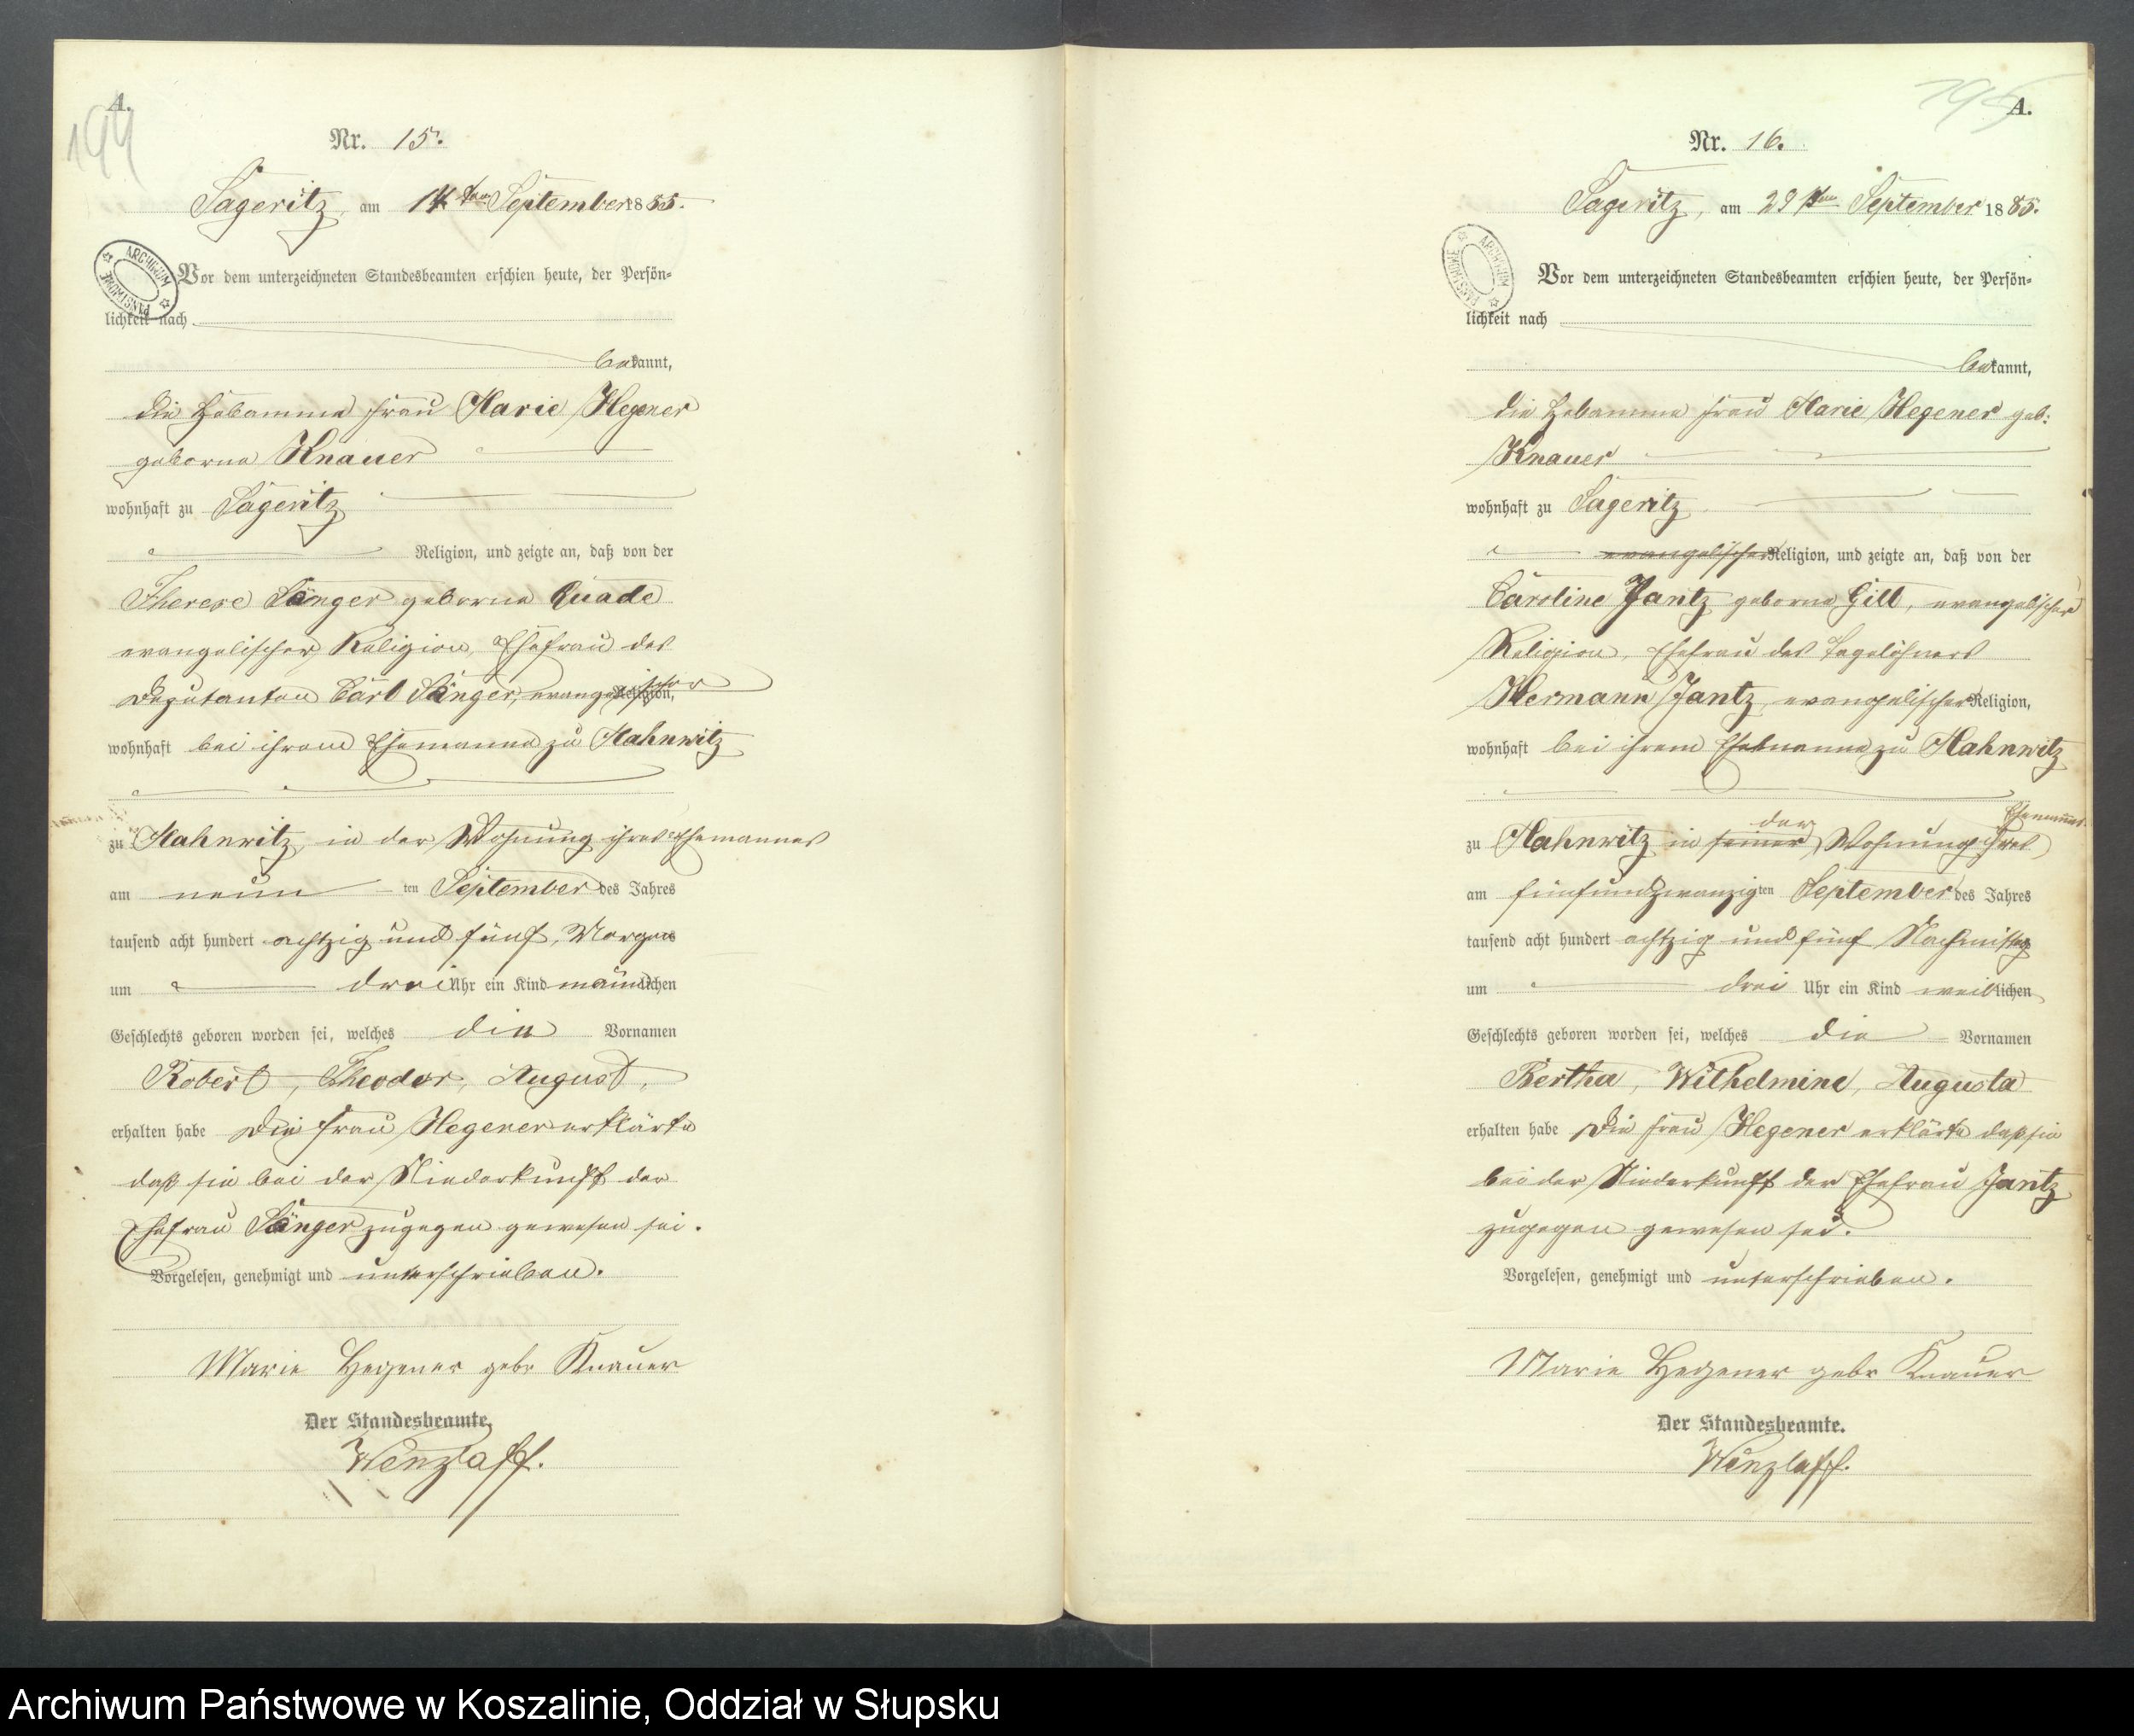 A.
194
Nr. 15.
Sageritz, am 14ten September 1885.
ARCHIWUM PAŃSTWOWE
Vor dem unterzeichneten Standesbeamten erschien heute, der Persön=
lichkeit nach
bekannt,
die Hebamme Frau Marie Hegener
geborne Knauer
wohnhaft zu Sageritz
Religion, und zeigte an, daß von der
Therese Sänger geborne Quade
evangelischer Religion, Ehefrau des
Deputanten Carl Sänger, evangelischer Religion,
wohnhaft bei ihrem Ehemanne zu Mahnwitz
zu Mahnwitz in der Wohnung ihres Ehemannes
am neun ten September des Jahres
tausend acht hundert achtzig und fünf, Morgens
um drei Uhr ein Kind männlichen
Geschlechts geboren worden sei, welches die Vornamen
Robert, Theodor, August,
erhalten habe Die Frau Hegener erklärte
daß sie bei der Niederkunft der
Ehefrau Sänger zugegen gewesen sei.
Vorgelesen, genehmigt und unterschrieben.
Marie Hegener gebr Knauer
Der Standesbeamte.
Wenzlaff.
195
A.
Nr. 16.
Sageritz, am 29ten September 1885.
ARCHIWUM PAŃSTWOWE
Vor dem unterzeichneten Standesbeamten erschien heute, der Persön=
lichkeit nach
bekannt,
die Hebamme Frau Marie Hegener geb:
Knauer
wohnhaft zu Sageritz
evangelischer Religion, und zeigte an, daß von der
Caroline Jantz geborne Gill, evangelischer
Religion, Ehefrau des Tagelöhners
Hermann Jantz, evangelischer Religion,
wohnhaft bei ihrem Ehemanne zu Mahnwitz
der Ehemannes
zu Mahnwitz in seiner Wohnung ihres
am fünfundzwanzigten September des Jahres
tausend acht hundert achtzig und fünf Nachmittag
um drei Uhr ein Kind weiblichen
Geschlechts geboren worden sei, welches die Vornamen
Bertha, Wilhelmine, Augusta
erhalten habe Die Frau Hegener erklärte daß sie
bei der Niederkunft der Ehefrau Jantz
zugegen gewesen sei.
Vorgelesen, genehmigt und unterschrieben.
Marie Hegener gebr Knauer
Der Standesbeamte.
Wenzlaff.
Archiwum Państwowe w Koszalinie, Oddział w Słupsku